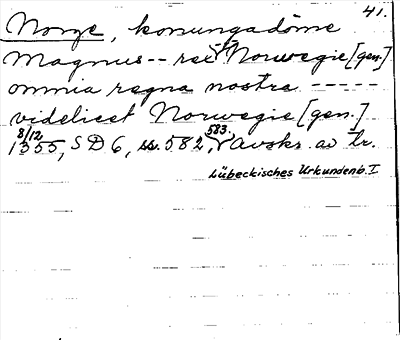 41.
Norge, konungadöme
Magnus -- rex Norwegie [gen.]
omnia regna nostra -----
videlicet Norwegie [gen.]
8/12 1355, SD 6, ss. 582, 583. Avskr. av tr.
Lübeckisches Urkundenb. I